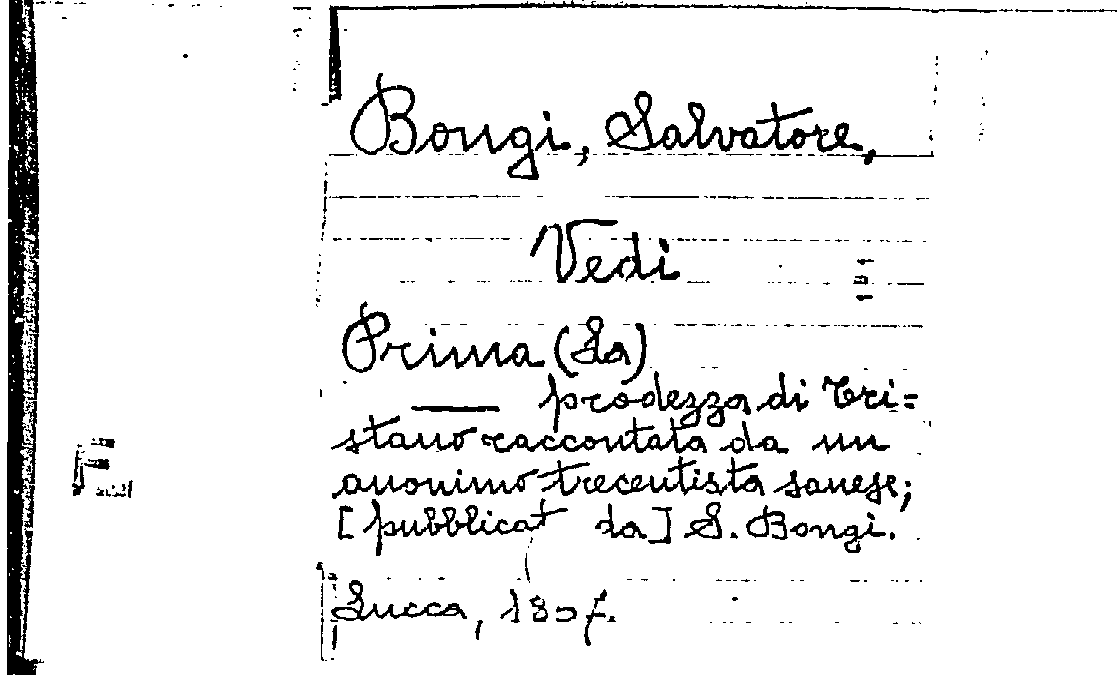 Bongi, Salvatore,
Vedi
Prima (La)
prodezza di Tri=
stano raccontata da un
anonimo trecentista sanese;
[pubblicat da] S. Bongi.
Lucca,